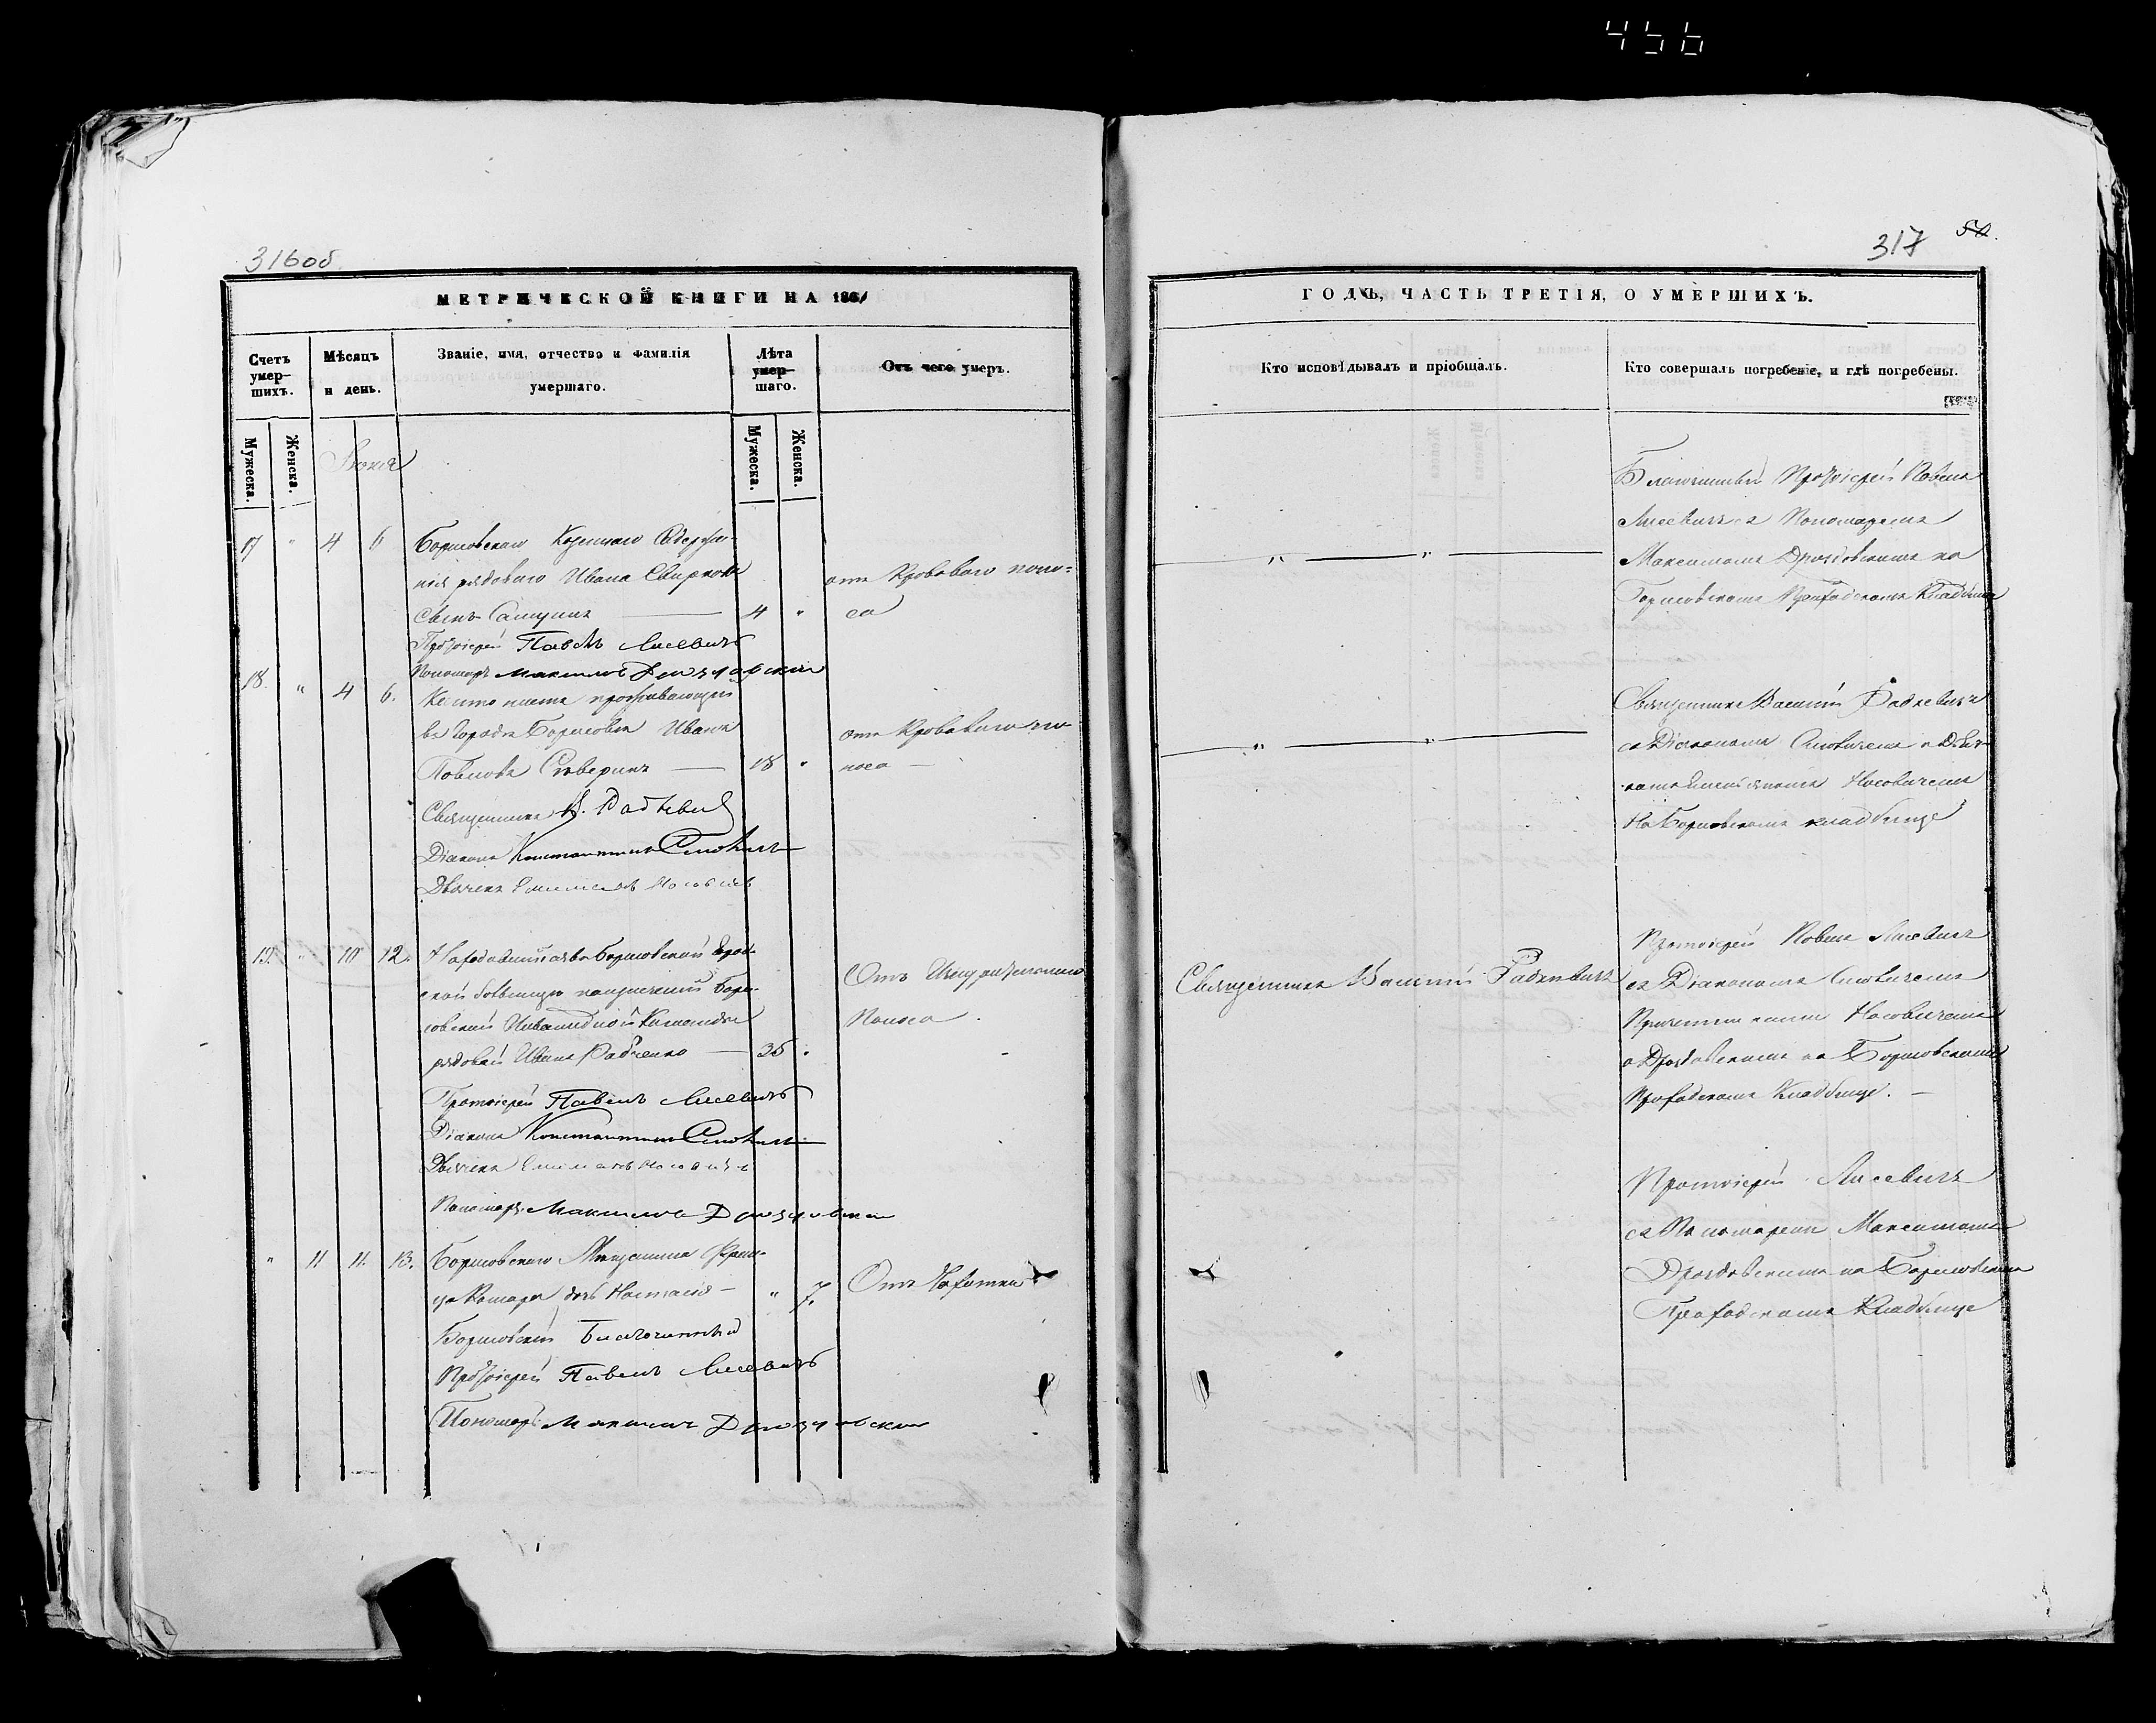 456
316об
МЕТРИЧЕСКОЙ КНИГИ НА 1861
Счетъ умер-шихъ.
Мѣсяцъ и день.
Званіе, имя, отчество и фамилія умершаго.
Лѣта умер-шаго.
Отъ чего умеръ.
Мужеска.
Женска.
Мужеска.
Женска.
Іюня
17 " 4 6
Борисовскаго
рядоваго Ивана
сынъ 4 "
отъ Кроваваго поно=
са
Протоіерей Павелъ Лисевичъ
Пономарь Максимъ Дроздовскій
18. " 4 6.
проживающій
въ городѣ Борисовѣ Иванъ
Павловъ Северинъ 18 "
отъ Кроваваго по-
носа
Священникъ В. Радкевичъ
Діаконъ Константинъ
Дьячекъ Носовичъ
19. " 10 12.
въ Борисовской Город-
ской больницѣ Бори-
совской Инвалидной Команды
рядовой Иванъ Рабченко 35 "
Отъ
Поноса
Протоіерей Павелъ Лисевичъ
Діаконъ Константинъ
Дьячекъ Носовичъ
Пономарь Максимъ Дроздовскій
" 11 11. 13.
Борисовскаго Мѣщанина Фран-
ца дочь Настасія " 7.
Отъ Чахотки
Борисовскій Благочинный
Протоіерей Павелъ Лисевичъ
Пономарь Максимъ Дроздовскій
317
ГОДЪ, ЧАСТЬ ТРЕТІЯ, О УМЕРШИХЪ.
Кто исповѣдывалъ и пріобщалъ.
Кто совершалъ погребеніе, и гдѣ погребены.
Благочинный Протоіерей Павелъ
Лисевичъ съ Пономаремъ
Максимомъ Дроздовскимъ на
Борисовскомъ Приходскомъ Кладбищѣ
Священникъ Василій Радкевичъ
съ Діакономъ и Дьяч-
Носовичемъ
На Борисовскомъ кладбищѣ
Священникъ Василій Радкевичъ
Протоіерей Павелъ Лисевичъ
съ Діакономъ
Причетниками Носовичемъ
и Дроздовскимъ на Борисовскомъ
Приходскомъ Кладбищѣ.
Протоіерей Лисевичъ
съ Пономаремъ Максимомъ
Дроздовскимъ на Борисовскомъ
Приходскомъ Кладбищѣ